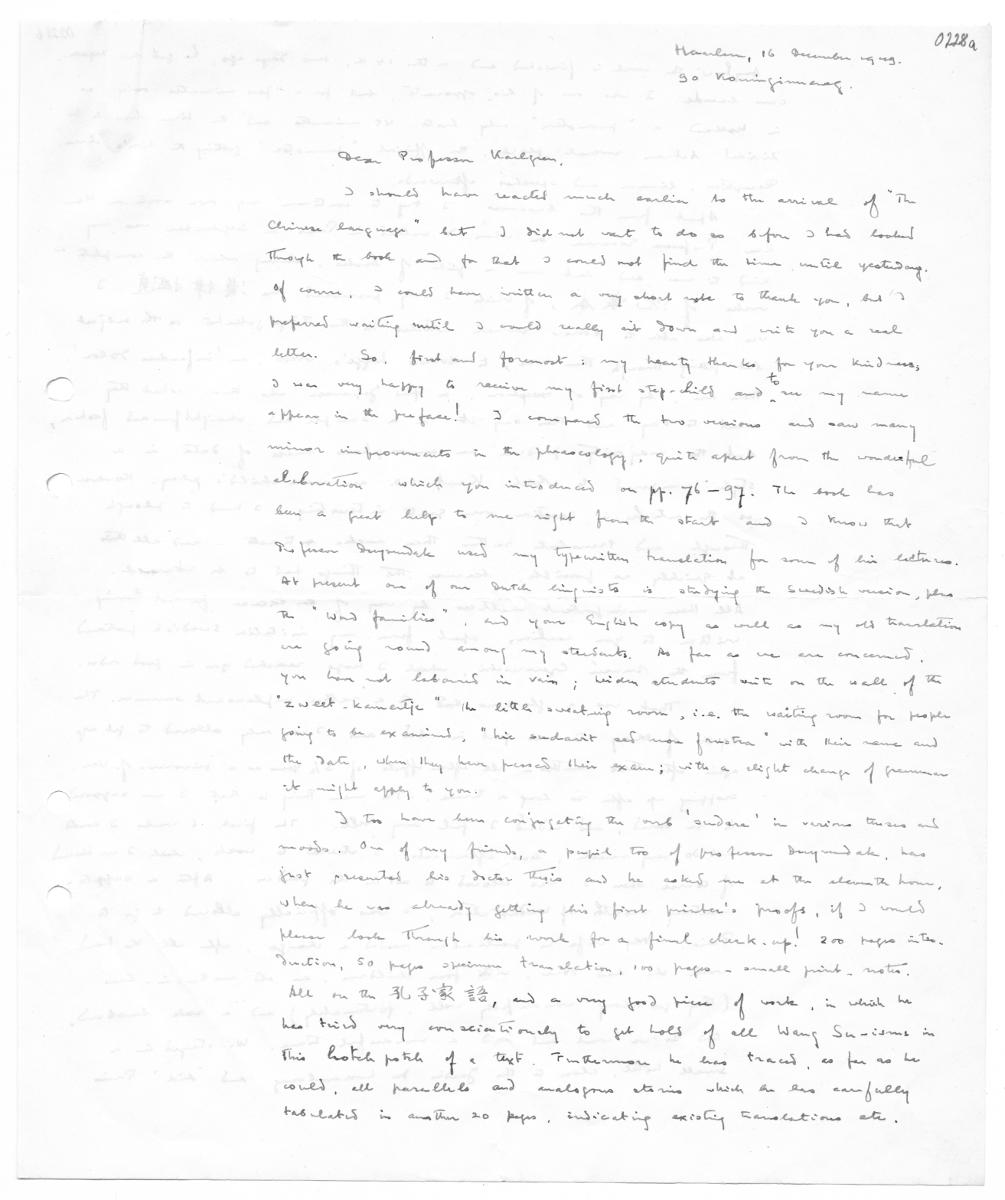 0228a
Haarlem, 16 December 1949.
90 Koninginneweg.
Dear Professor Karlgren,
I should have reacted much earlier to the arrival of "The
Chinese language" but I did not want to do so before I had looked
through the book and for that I could not find the time until yesterday.
Of course, I could have written a very short note to thank you, but I
preferred waiting until I could really sit down and write you a real
letter. So, first and foremost: my hearty thanks for your kindness,
I was very happy to receive my first step-child and to see my name
appear in the preface! I compared the two versions and saw many
minor improvements in the phraseology, quite apart from the wonderful
elaboration which you introduced on pp. 76-97. The book has
been a great help to me right from the start and I know that
Professor Duyvendak used my typewritten translation for some of his lectures.
At present one of our Dutch linguists is studying the Swedish version, plus
the "Word families", and your English copy as well as my old translation
are going round among my students. As far as we are concerned,
you have not laboured in vain; Leiden students write on the wall of the
"zweet-kamertje" the little sweating room, i.e. the waiting room for people
going to be examined, "hic sudavit sed non frustra" with their name and
the date, when they have passed their exam; with a slight change of grammar
it might apply to you.
I too have been conjugating the verb 'sudare' in various tenses and
moods. One of my friends, a pupil too of professor Duyvendak, has
just presented his doctor thesis and he asked me at the eleventh hour,
when he was already getting his first printer's proofs, if I would
please look through his work for a final check-up! 200 pages intro-
duction, 50 pages specimen translation, 100 pages - small print - notes.
All on the 孔子家語, and a very good piece of work, in which he
has tried very consciantiously to get hold of all Wang Su-isms in
this hotch potch of a text. Furthermore he has traced, as far as he
could, all parallels and analogous stories which he has carefully
tabulated in another 20 pages, indicating existing translations etc.